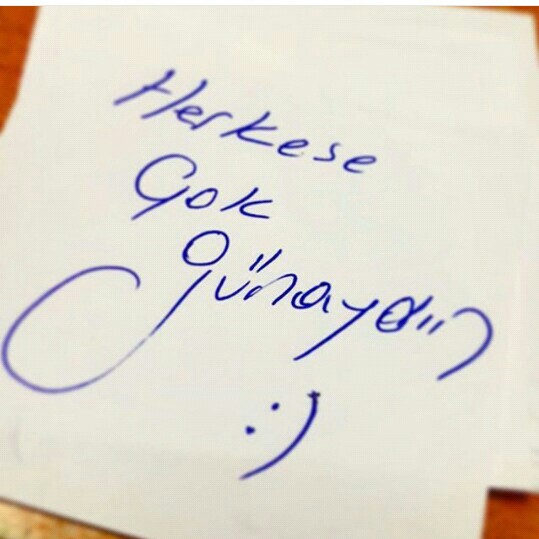 Herkese
Çok
günaydın
:)